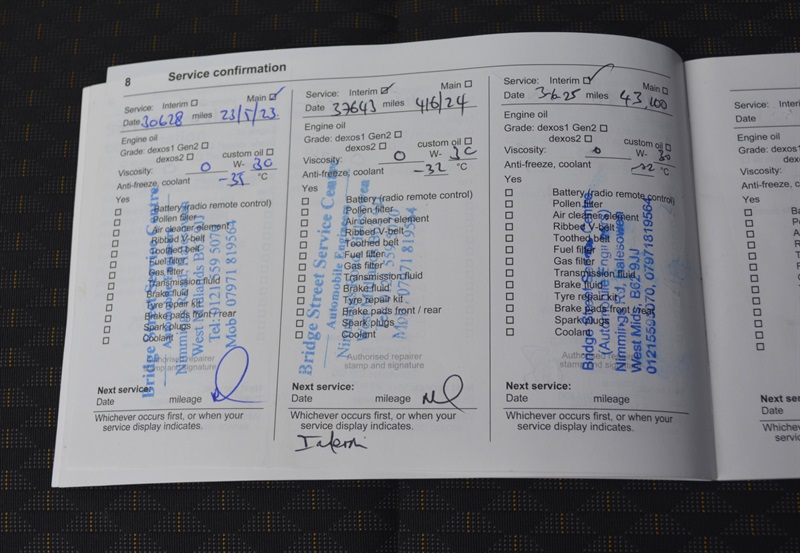 8
Service confirmation
Service: Interim ☐ Main ☑
Date 30628 miles 23/5/23
Engine oil
Grade: dexos1 Gen2 ☐
dexos2 ☐ custom oil ☐
Viscosity: 0 W- 30
Anti-freeze, coolant -35 °C
Yes
☐ Battery (radio remote control)
☐ Pollen filter
☐ Air cleaner element
☐ Ribbed V-belt
☐ Toothed belt
☐ Fuel filter
☐ Gas filter
☐ Transmission fluid
☐ Brake fluid
☐ Tyre repair kit
☐ Brake pads front / rear
☐ Spark plugs
☐ Coolant
Bridge Street Service Centre
West Midlands
Tel: 0121 559 3070
Mob: 07971 819564
Authorised repairer
stamp and signature
Next service:
Date mileage
Whichever occurs first, or when your
service display indicates.
Service: Interim ☑ Main ☐
Date 37643 miles 4/6/24
Engine oil
Grade: dexos1 Gen2 ☐
dexos2 ☐ custom oil ☐
Viscosity: 0 W- 30
Anti-freeze, coolant -32 °C
Yes
☐ Battery (radio remote control)
☐ Pollen filter
☐ Air cleaner element
☐ Ribbed V-belt
☐ Toothed belt
☐ Fuel filter
☐ Gas filter
☐ Transmission fluid
☐ Brake fluid
☐ Tyre repair kit
☐ Brake pads front / rear
☐ Spark plugs
☐ Coolant
Bridge Street Service Centre
Automobile Engineers
07971 819564
Authorised repairer
stamp and signature
Next service:
Date mileage
Whichever occurs first, or when your
service display indicates.
Interim
Service: Interim ☑ Main ☐
Date 3-6-25 miles 43,100
Engine oil
Grade: dexos1 Gen2 ☐
dexos2 ☐ custom oil ☐
Viscosity: 0 W- 30
Anti-freeze, coolant °C
Yes
☐ Battery (radio remote control)
☐ Pollen filter
☐ Air cleaner element
☐ Ribbed V-belt
☐ Toothed belt
☐ Fuel filter
☐ Gas filter
☐ Transmission fluid
☐ Brake fluid
☐ Tyre repair kit
☐ Brake pads front / rear
☐ Spark plugs
☐ Coolant
Bridge Street
Nimmings Rd, Halesowen
West Mids, B62 9JJ
01215593070, 07971819564
Next service:
Date mileage
Whichever occurs first, or when your
service display indicates.
Service: Interi
Date
Engine oil
Grade: dexos
Viscosity:
Anti-freeze, c
Yes
Next se
Date
Whichev
servi